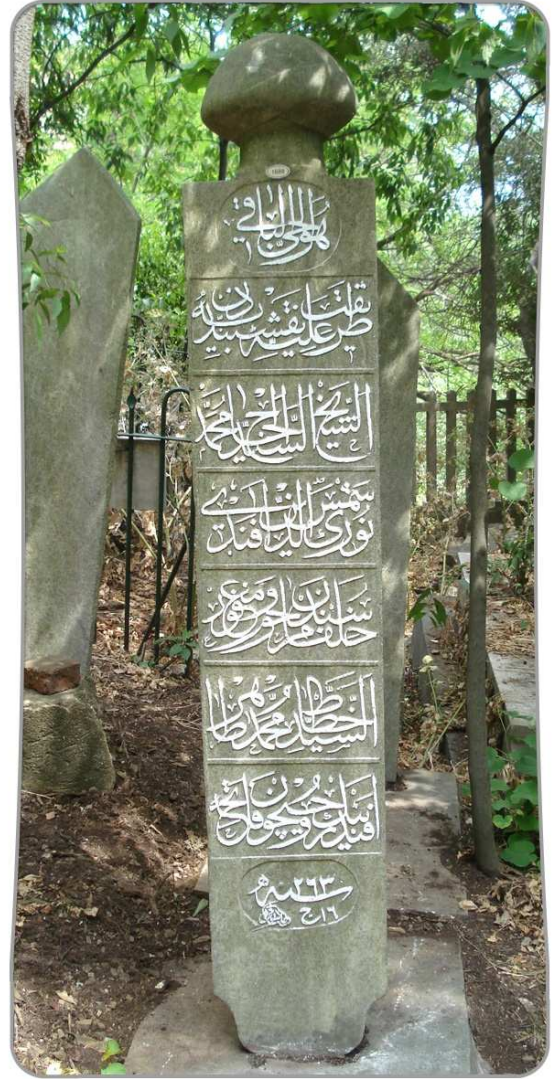 هو الحي الباقي
طريقت عليه نقشبنديه دن
الشيخ السيد الحاج محمد
نوري شمس الدين افندي
خلفاسندن مرحوم و مغفور
الخطاط السيد محمد طاهر
افندينك روحيچون فاتحه
سنه ٢٦٣
١٦ ج